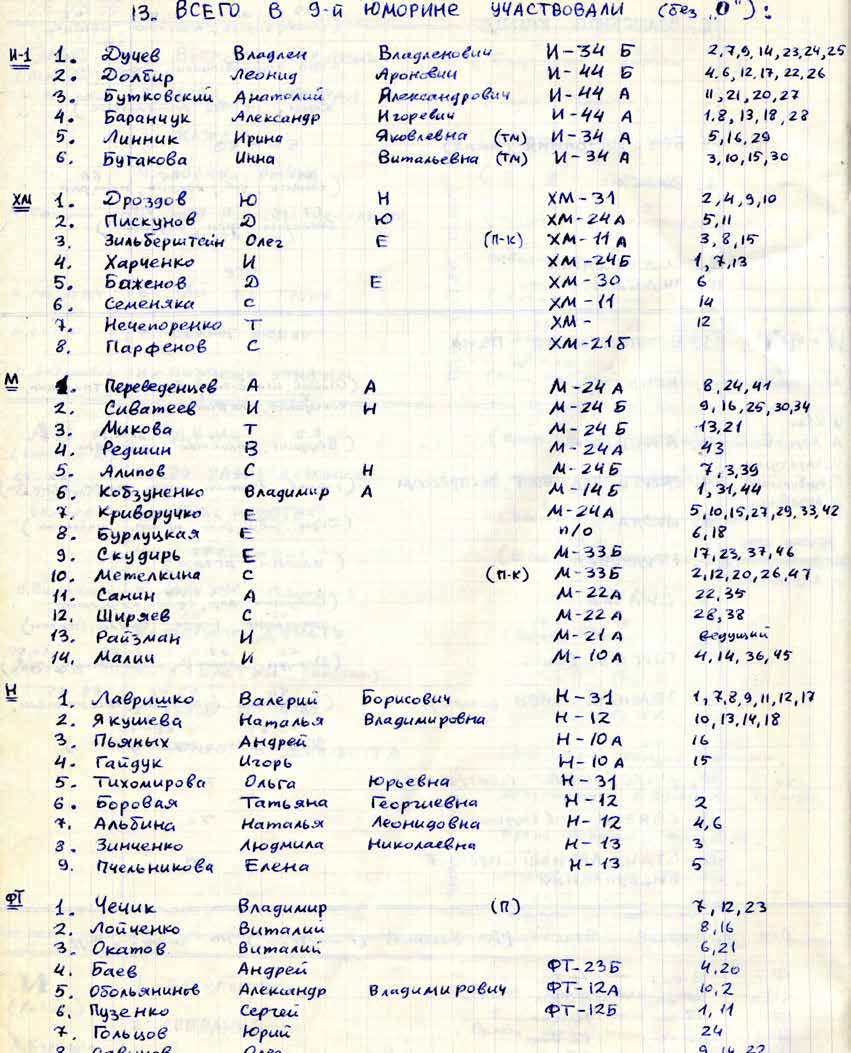 13. ВСЕГО В 9-й ЮМОРИНЕ УЧАСТВОВАЛИ (без "0"):
И-1 1. Дучев Владлен Владленович И-34 Б 2,7,9,14,23,24,25
2. Долбир Леонид Аронович И-44 Б 4,6,12,17,22,26
3. Бутковский Анатолий Александрович И-44 А 11,21,20,27
4. Баранчук Александр Игоревич И-44 А 1,8,13,18,28
5. Линник Ирина Яковлевна (ТМ) И-34 А 5,16,29
6. Бугакова Инна Витальевна (ТМ) И-34 А 3,10,15,30
ХМ 1. Дроздов Ю Н ХМ-31 2,4,9,10
2. Пискунов Д Ю ХМ-24А 5,11
3. Зильберштейн Олег Е (П-К) ХМ-11А 3,8,15
4. Харченко И ХМ-24Б 1,7,13
5. Баженов Д Е ХМ-30 6
6. Семеняка С ХМ-11 14
7. Нечепоренко Т ХМ- 12
8. Парфенов С ХМ-21Б
М 1. Переведенцев А А М-24А 8,24,41
2. Сиватеев И Н М-24 Б 9,16,25,30,34
3. Микова Т М-24 Б 13,21
4. Редшин В М-24А 43
5. Алипов С Н М-24Б 7,3,39
6. Кобзуненко Владимир А М-14Б 1,31,44
7. Криворучко Е М-24А 5,10,15,27,29,33,42
8. Бурлуцкая Е п/о 6,18
9. Скудирь Е М-33Б 17,23,37,46
10. Метелкина С (П-К) М-33Б 2,12,20,26,47
11. Санин А М-22А 22,35
12. Ширяев С М-22А 28,38
13. Райзман И М-21А ведущий
14. Малии И М-10А 4,14,36,45
Н 1. Лавришко Валерий Борисович Н-31 1,7,8,9,11,12,17
2. Якушева Наталья Владимировна Н-12 10,13,14,18
3. Пьяных Андрей Н-10А 16
4. Гайдук Игорь Н-10А 15
5. Тихомирова Ольга Юрьевна Н-31
6. Боровая Татьяна Георгиевна Н-12 2
7. Альбина Наталья Леонидовна Н-12 4,6
8. Зинченко Людмила Николаевна Н-13 3
9. Пчельникова Елена Н-13 5
ФТ 1. Чечик Владимир (П) 7,12,23
2. Лойченко Виталий 8,16
3. Окатов Виталий 6,21
4. Баев Андрей ФТ-23Б 4,20
5. Обольянинов Александр Владимирович ФТ-12А 10,2
6. Пузенко Сергей ФТ-12Б 1,11
7. Гольцов Юрий 24